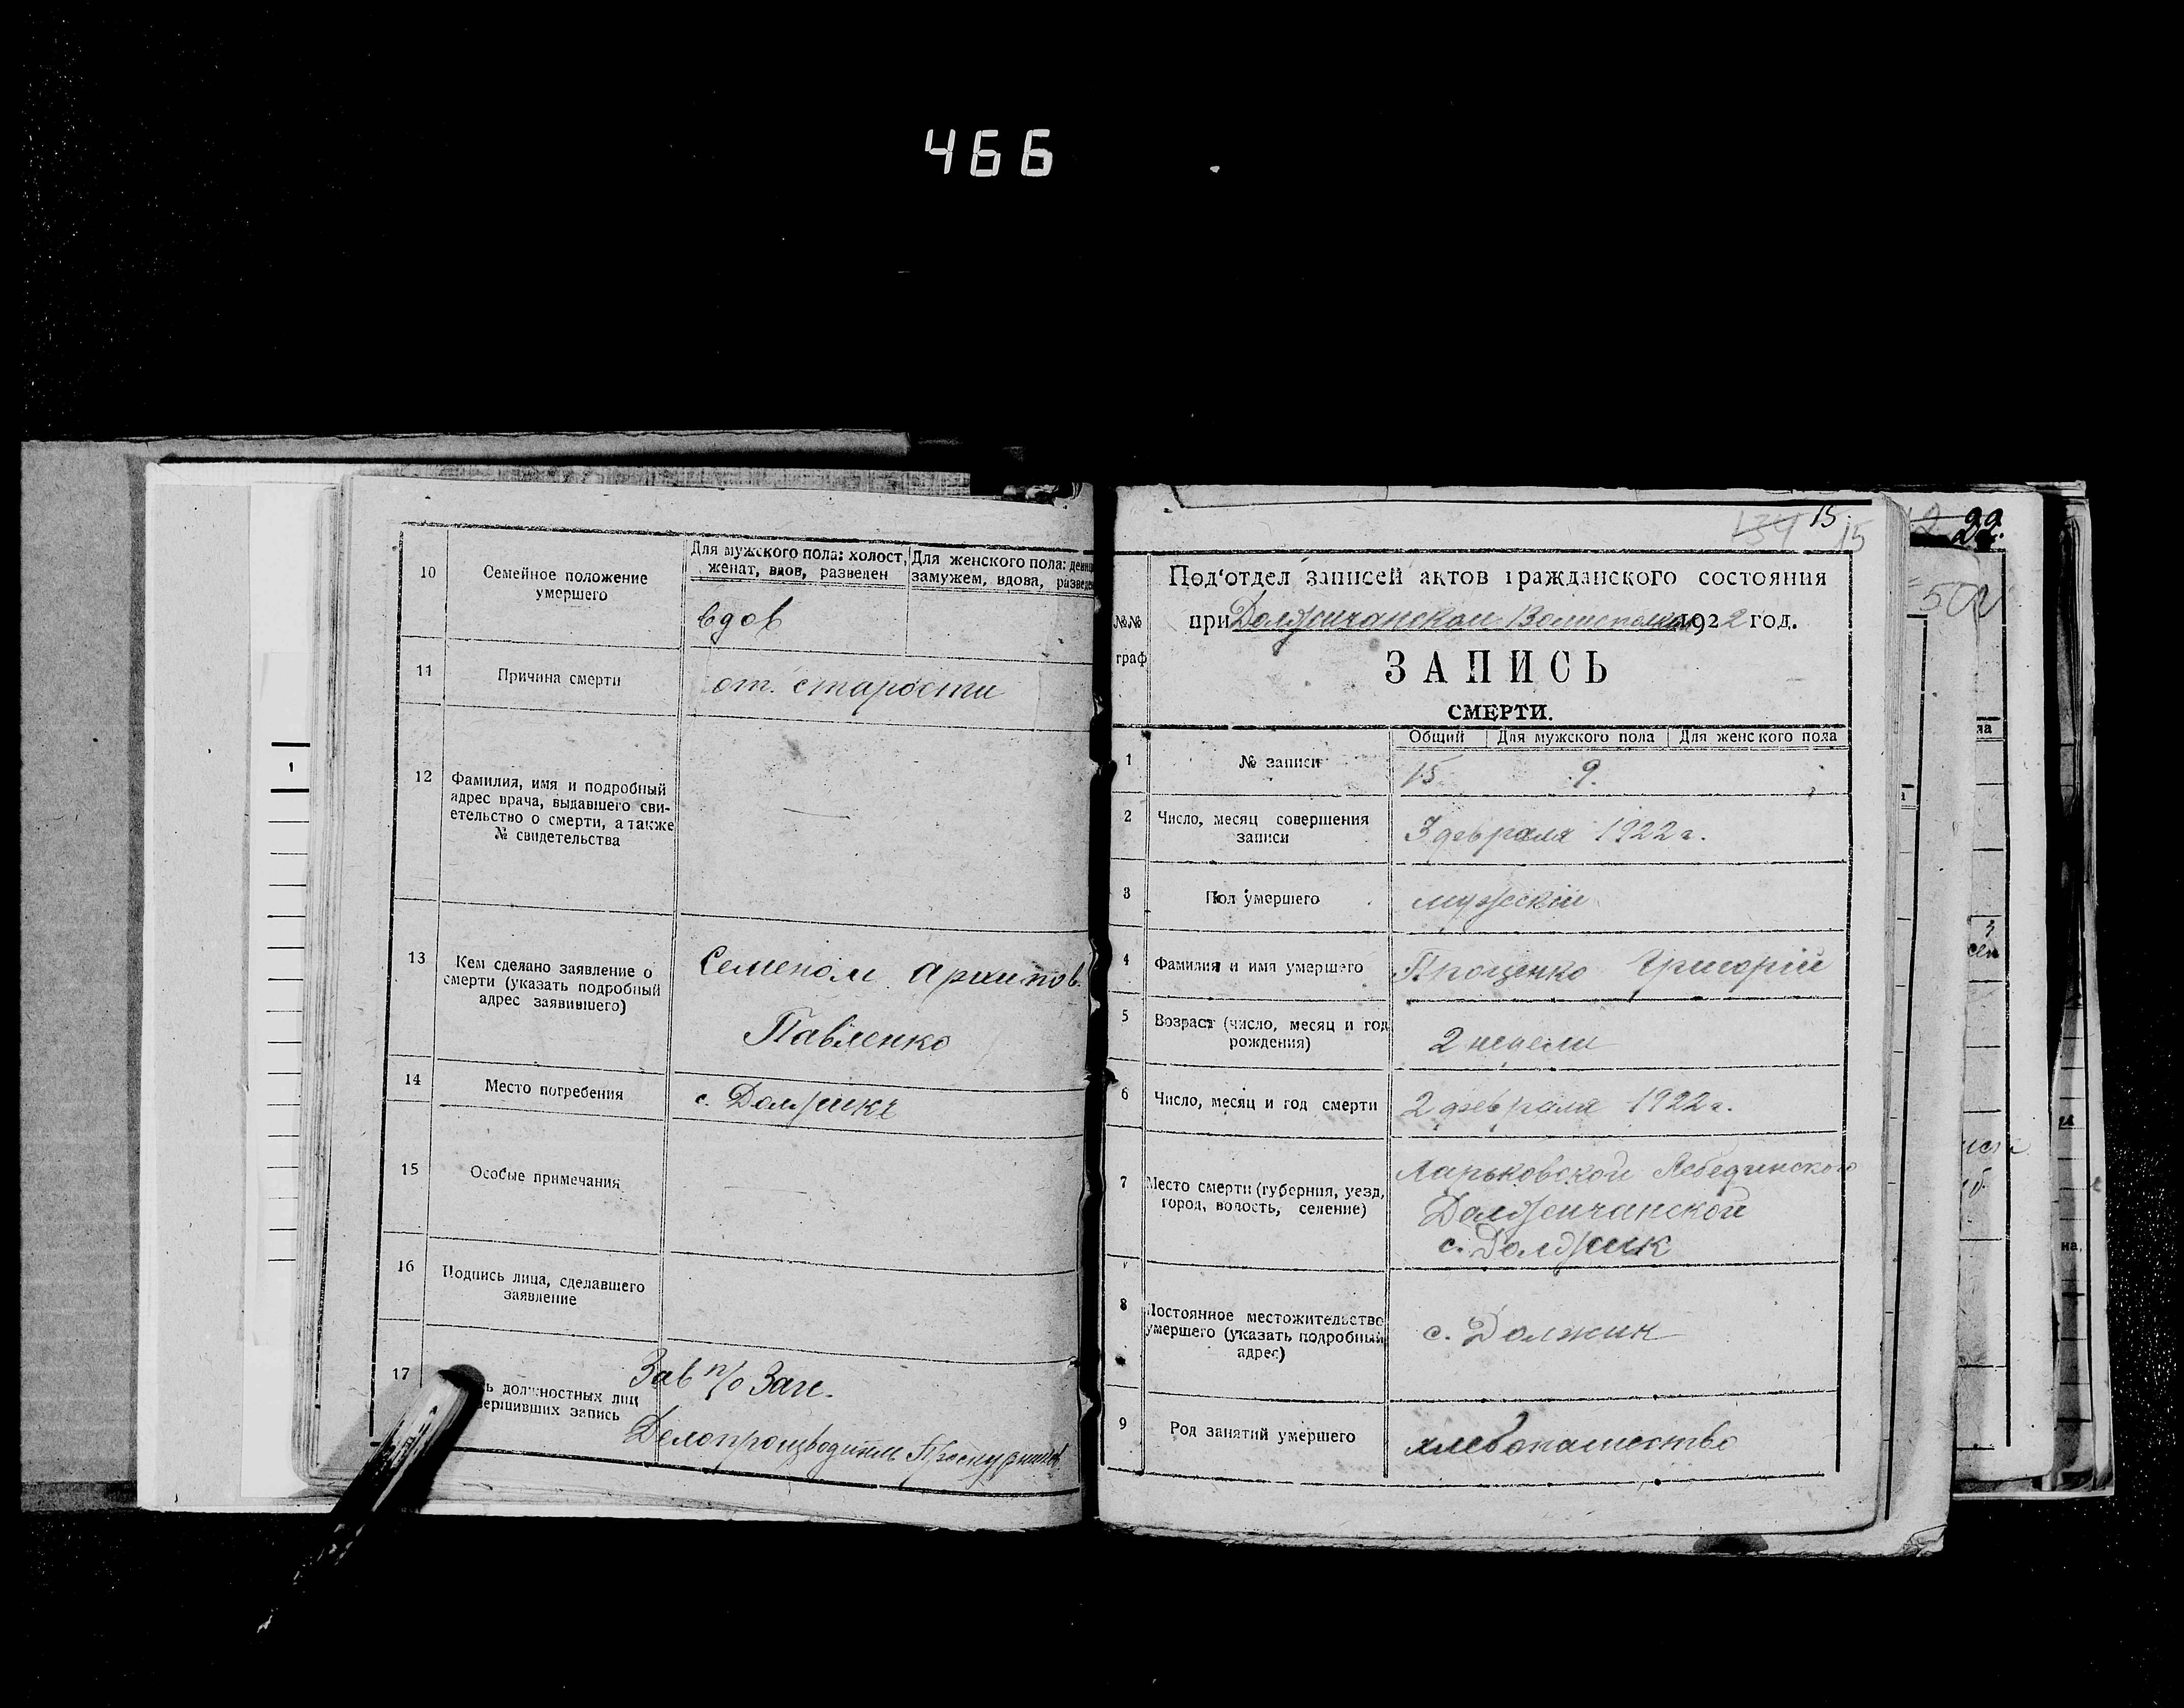 466
10
Семейное положение
умершего
Для мужского пола: холост,
женат, вдов, разведен
Для женского пола: девиц
замужем, вдова, разведен
вдов
11
Причина смерти
от старости
12
Фамилия, имя и подробный
адрес врача, выдавшего сви-
етельство о смерти, а также
№ свидетельства
—
13
Кем сделано заявление о
смерти (указать подробный
адрес заявившего)
Семеном Архипов.
Павленко
14
Место погребения
с. Должике
15
Особые примечания
16
Подпись лица, сделавшего
заявление
17
ь должностных лиц
вершивших запись
Зав п/о Заге.
Делопроизводитель
15
134 15
№№
граф
Под'отдел записей актов гражданского состояния
при Должичанском Волисполкоме 1922 год.
ЗАПИСЬ
СМЕРТИ.
1
№ записи
Общий Для мужского пола Для женского пола
15. 9.
2
Число, месяц совершения
записи
3 февраля 1922 г.
3
Пол умершего
мужскій
4
Фамилия и имя умершего
Проценко Григорій
5
Возраст (число, месяц и год
рождения)
2 недели
6
Число, месяц и год смерти
2 февраля 1922 г.
7
Место смерти (губерния, уезд,
город, волость, селение)
Харьковской Лебединского
Должичанской
с. Должик
8
Постоянное местожительство
умершего (указать подробный
адрес)
с. Должик
9
Род занятий умершего
хлебопашество